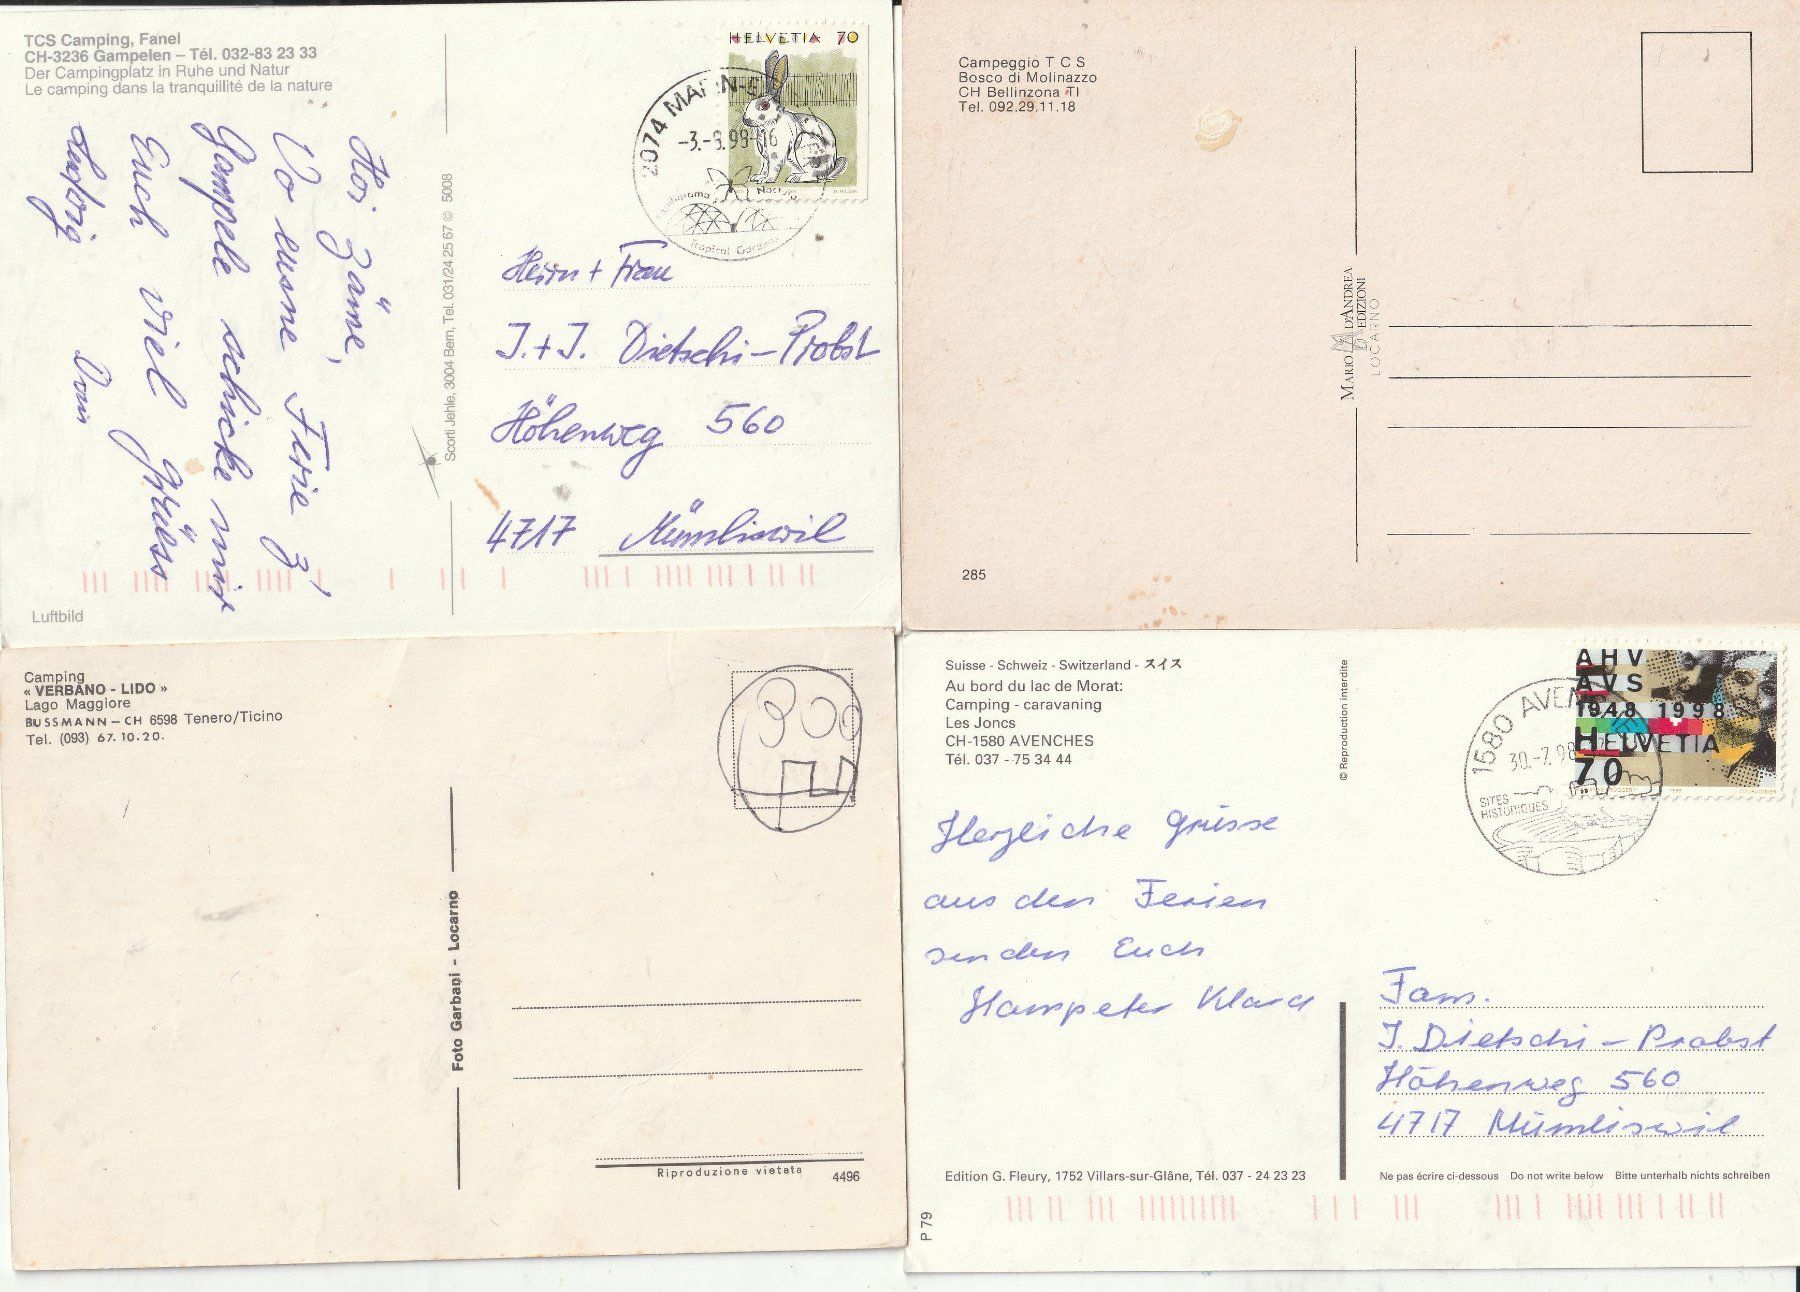 TCS Camping, Fanel
CH-3236 Gampelen – Tél. 032-83 23 33
Der Campingplatz in Ruhe und Natur
Le camping dans la tranquillité de la nature
HELVETIA 70
2074 MARIN-E
-3.-8.98-16
Papiliorama Nocturama
Tropical Gardens
Hoi zäme,
Vo eusne Ferie z'
Gampele schicke mir
Euch viel Grüess
Hedwig
Scorti Jehle, 3004 Bern, Tel. 031/24 25 67 © 5008
Herrn + Frau
J. + J. Dietschi-Probst
Höhenweg 560
4717 Mümliswil
Luftbild
Campeggio T C S
Bosco di Molinazzo
CH Bellinzona TI
Tel. 092.29.11.18
MARIO D'ANDREA
EDIZIONI
LOCARNO
285
Camping
« VERBANO - LIDO »
Lago Maggiore
BUSSMANN – CH 6598 Tenero/Ticino
Tel. (093) 67.10.20.
Foto Garbani - Locarno
Riproduzione vietata
4496
Suisse - Schweiz - Switzerland - スイス
Au bord du lac de Morat:
Camping - caravaning
Les Joncs
CH-1580 AVENCHES
Tél. 037 - 75 34 44
© Reproduction interdite
AHV
AVS
1948 1998
HELVETIA
70
1580 AVEN
30.-7.98
SITES
HISTORIQUES
Herzliche Grüsse
aus den Ferien
senden Euch
Hanspeter Klara
Fam.
J. Dietschi-Probst
Höhenweg 560
4717 Mümliswil
Edition G. Fleury, 1752 Villars-sur-Glâne, Tél. 037 - 24 23 23
Ne pas écrire ci-dessous Do not write below Bitte unterhalb nichts schreiben
P 79